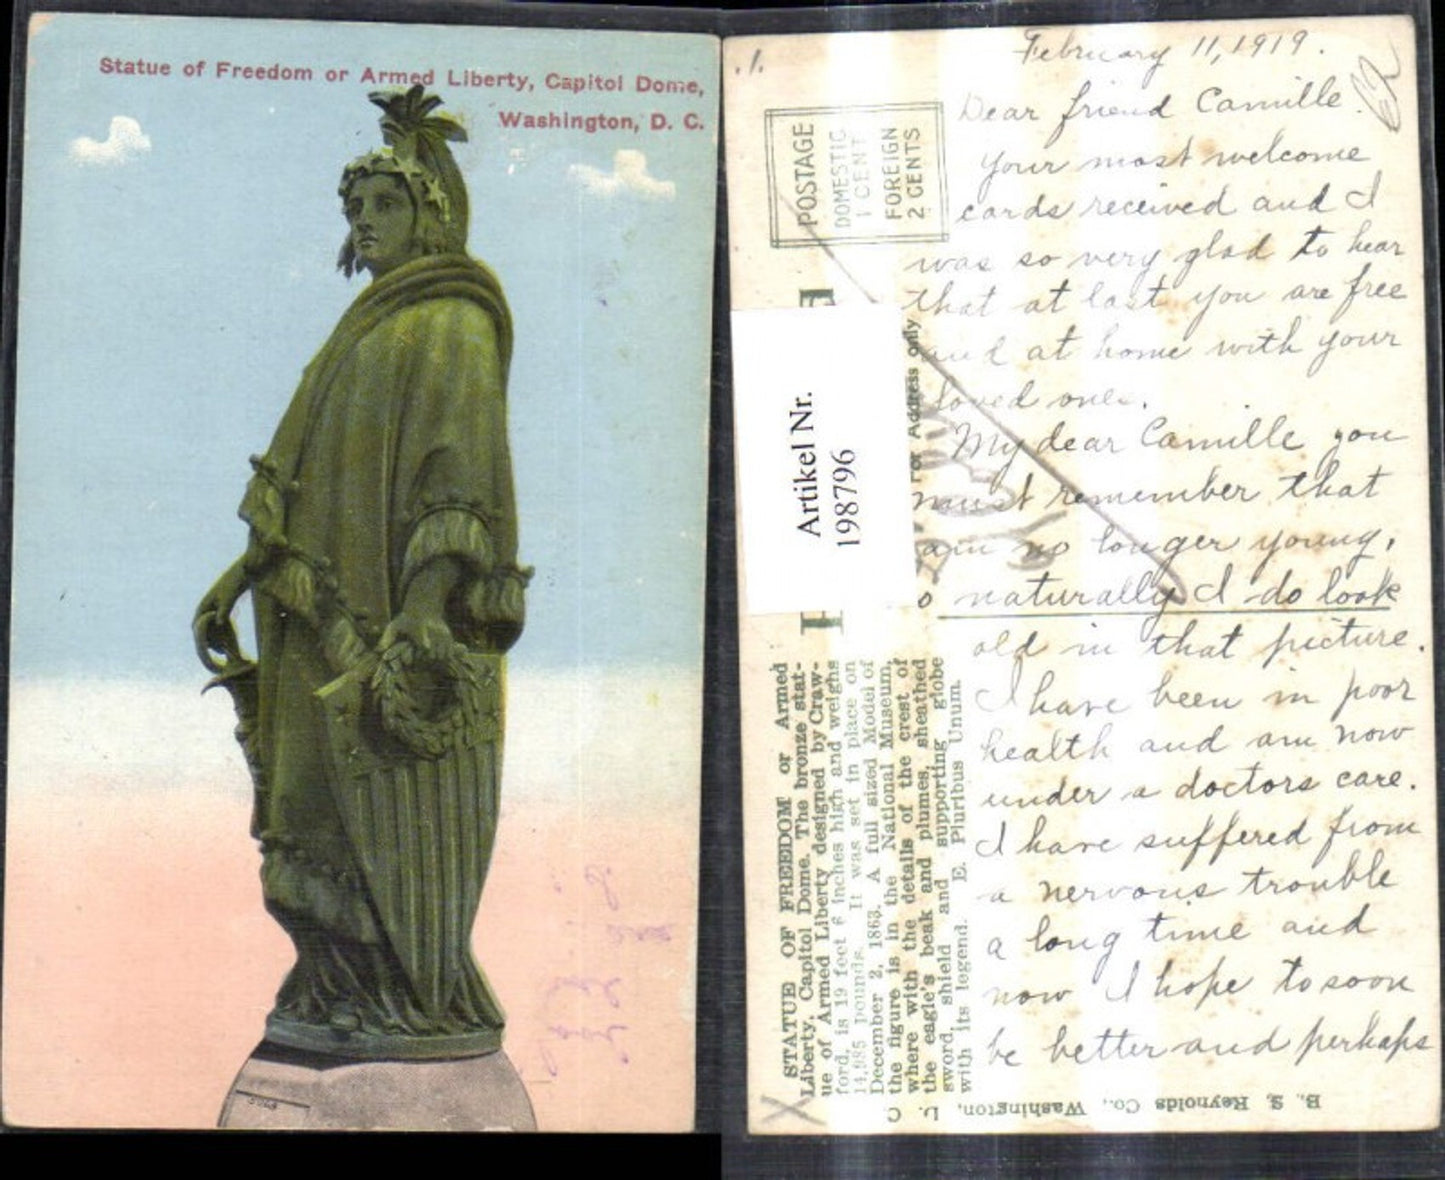 Statue of Freedom or Armed Liberty, Capitol Dome,
Washington, D. C.
.1.
February 11, 1919.
Dear friend Camille.
Your most welcome
cards received and I
was so very glad to hear
that at last you are free
and at home with your
loved ones.
My dear Camille you
must remember that
am no longer young,
naturally I do look
old in that picture.
I have been in poor
health and am now
under a doctors care.
I have suffered from
a nervous trouble
a long time and
now I hope to soon
be better and perhaps
POSTAGE
DOMESTIC
1 CENT
FOREIGN
2 CENTS
For Address only
Artikel Nr.
198796
STATUE OF FREEDOM or Armed
Liberty, Capitol Dome. The bronze stat-
ue of Armed Liberty designed by Craw-
ford, is 19 feet 6 inches high and weighs
14,985 pounds. It was set in place on
December 2, 1863. A full sized Model of
the figure is in the National Museum,
where with the details of the crest of
the eagle's beak and plumes, sheathed
sword, shield and supporting globe
with its legend. E. Pluribus Unum.
B. S. Reynolds Co., Washington, D. C.